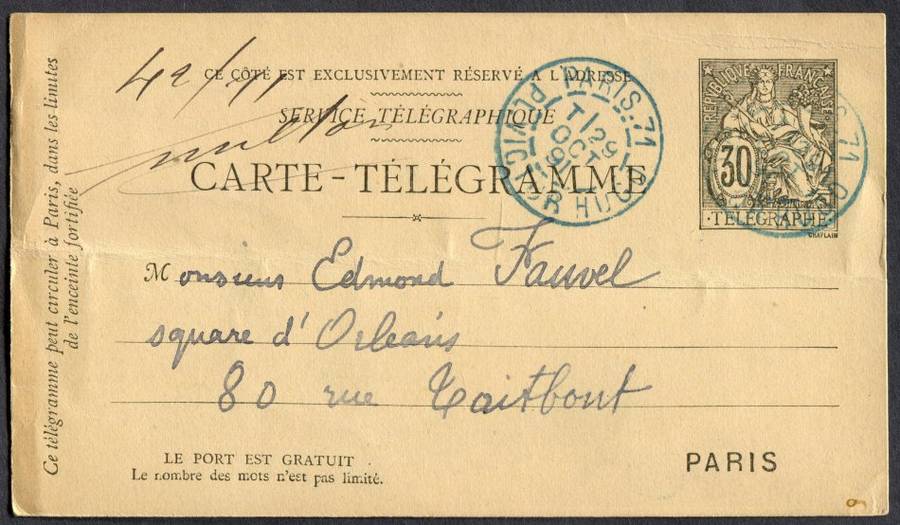 Ce télégramme peut circuler à Paris, dans les limites
de l'enceinte fortifiée
42/11
CE CÔTÉ EST EXCLUSIVEMENT RÉSERVÉ A L'ADRESSE
SERVICE TÉLÉGRAPHIQUE
CARTE-TÉLÉGRAMME
PARIS. 71
PL. VICTOR HUGO
29
OCT
91
REPUBLIQUE FRANÇAISE
30
TELEGRAPHE
CHAPLAIN
Monsieur Edmond Fauvel
square d'Orléans
80 rue Taitbout
LE PORT EST GRATUIT.
Le nombre des mots n'est pas limité.
PARIS